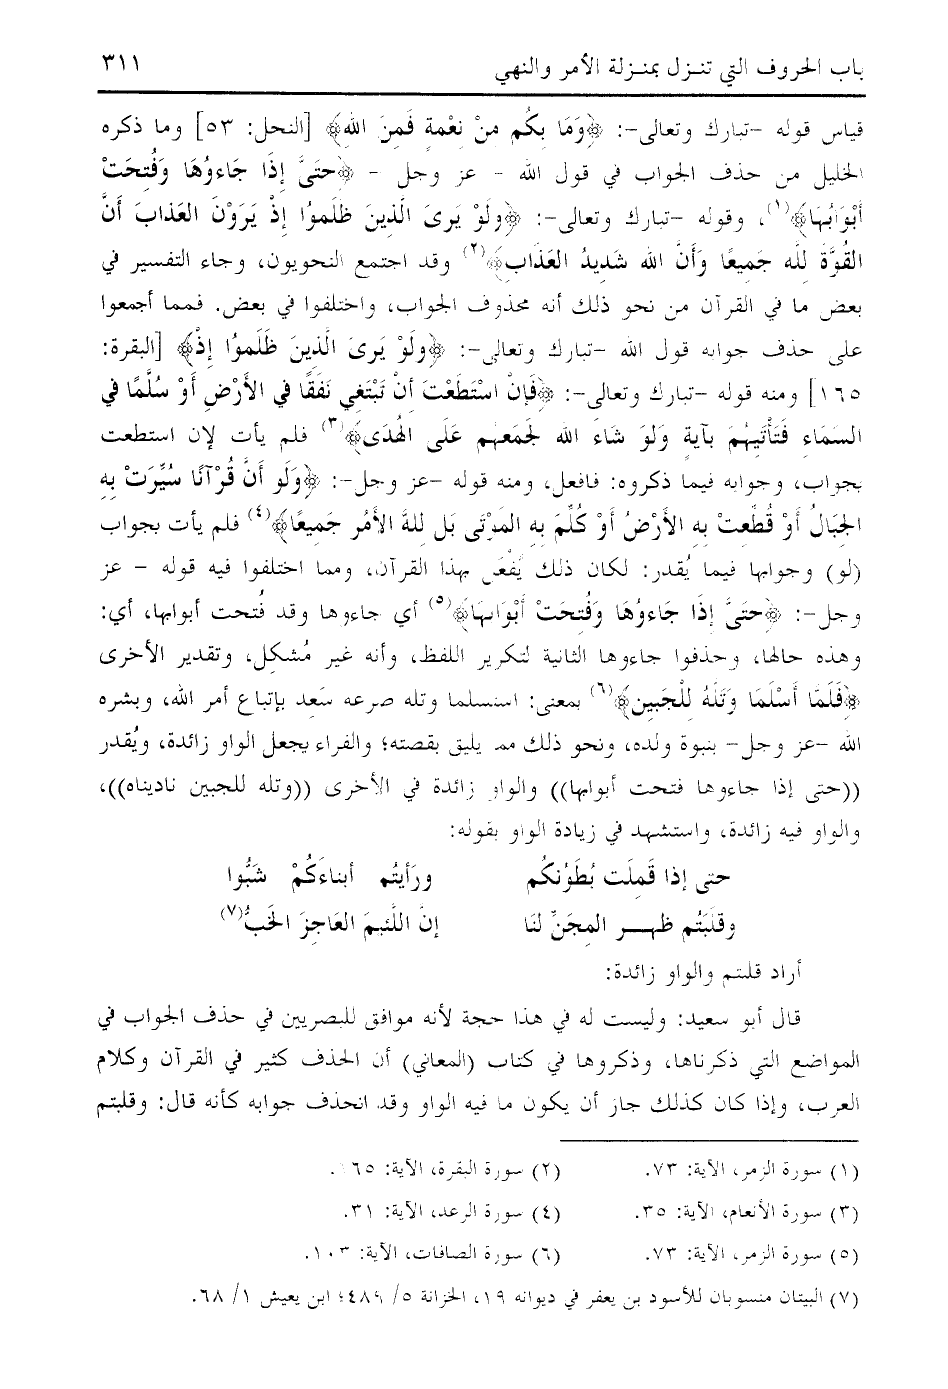 باب الحروف التي تنـزل بمنـزلة الأمر والنهي ٣١١
قياس قوله –تبارك وتعالى–: ﴿وَمَا بِكُم مِنْ نِعْمَةٍ فَمِنَ اللهِ﴾ [النحل: ٥٣] وما ذكره
الخليل من حذف الجواب في قول الله - عز وجل - ﴿حتَىَّ إِذَا جَاءوُهَا وَفُتِحَتْ
أَبْوَابُهَا﴾(١)، وقوله –تبارك وتعالى–: ﴿وَلَوْ يَرىَ الَّذِينَ ظَلَموُا إِذْ يَرَوْنَ العَذابَ أَنَّ
القُوَّةَ لله جَمِيعًا وَأَنَّ الله شَدِيدُ العَذَابِ﴾(٢) وقد اجتمع النحويون، وجاء التفسير في
بعض ما في القرآن من نحو ذلك أنه محذوف الجواب، واختلفوا في بعض. فمما أجمعوا
على حذف جوابه قول الله –تبارك وتعالى–: ﴿وَلَوْ يَرىَ الَّذِينَ ظَلَموُا إِذْ﴾ [البقرة:
١٦٥] ومنه قوله –تبارك وتعالى–: ﴿فَإِنْ اسْتَطَعْتَ أَنْ تَبْتَغِي نَفَقًا فِي الأَرْضِ أَوْ سُلَّمًا فِي
السَمَاءِ فَتَأْتِيهُمْ بآيَةٍ وَلَوَ شَاءَ الله لَجَمَعهُم عَلَى الهُدَى﴾(٣) فلم يأت لإن استطعت
بجواب، وجوابه فيما ذكروه: فافعل، ومنه قوله –عز وجل–: ﴿وَلَو أَنَّ قُرْآنًا سُيِّرَتْ بِهِ
الجِبَالُ أَوْ قُطِّعتْ بِهِ الأَرْضُ أَوْ كُلِّمَ بِهِ المَوْتَى بَل للهَّ الأَمُر جَمِيعًا﴾(٤) فلم يأت بجواب
(لو) وجوابها فيما يُقدر: لكان ذلك يُفْعَل بهذا القرآن، ومما اختلفوا فيه قوله – عز
وجل–: ﴿حتَىَّ إِذَا جَاءوُهَا وَفُتِحَتْ أَبْوَابَهَا﴾(٥) أي جاءوها وقد فُتحت أبوابها، أي:
وهذه حالها، وحذفوا جاءوها الثانية لتكرير اللفظ، وأنه غير مُشكل، وتقدير الأخرى
﴿فَلَمَّا أَسْلَمَا وَتَلَّهُ لِلْجَبِينِ﴾(٦) بمعنى: استسلما وتله صرعه سَعد بإتباع أمر الله، وبشره
الله –عز وجل– بنبوة ولده، ونحو ذلك مما يليق بقصته؛ والفراء يجعل الواو زائدة، ويُقدر
((حتى إذا جاءوها فتحت أبوابها)) والواو زائدة في الأخرى ((وتله للجبين ناديناه))،
والواو فيه زائدة، واستشهد في زيادة الواو بقوله:
حتى إذا قَمِلَت بُطَوُنكُم ورَأيتُم أبناءَكُمْ شَبُّوا
وقلَبَتُم ظهـــر المِجَنِّ لنَا إنَّ اللَّئيمَ العَاجِزَ الخَبُّ(٧)
أراد قلبتم والواو زائدة:
قال أبو سعيد: وليست له في هذا حجة لأنه موافق للبصريين في حذف الجواب في
المواضع التي ذكرناها، وذكروها في كتاب (المعاني) أن الحذف كثير في القرآن وكلام
العرب، وإذا كان كذلك جاز أن يكون ما فيه الواو وقد انحذف جوابه كأنه قال: وقلبتم
(١) سورة الزمر، الآية: ٧٣. (٢) سورة البقرة، الآية: ١٦٥.
(٣) سورة الأنعام، الآية: ٣٥. (٤) سورة الرعد، الآية: ٣١.
(٥) سورة الزمر، الآية: ٧٣. (٦) سورة الصافات، الآية: ١٠٣.
(٧) البيتان منسوبان للأسود بن يعفر في ديوانه ١٩، الخزانة ٥/ ٤٨٩؛ ابن يعيش ١/ ٦٨.